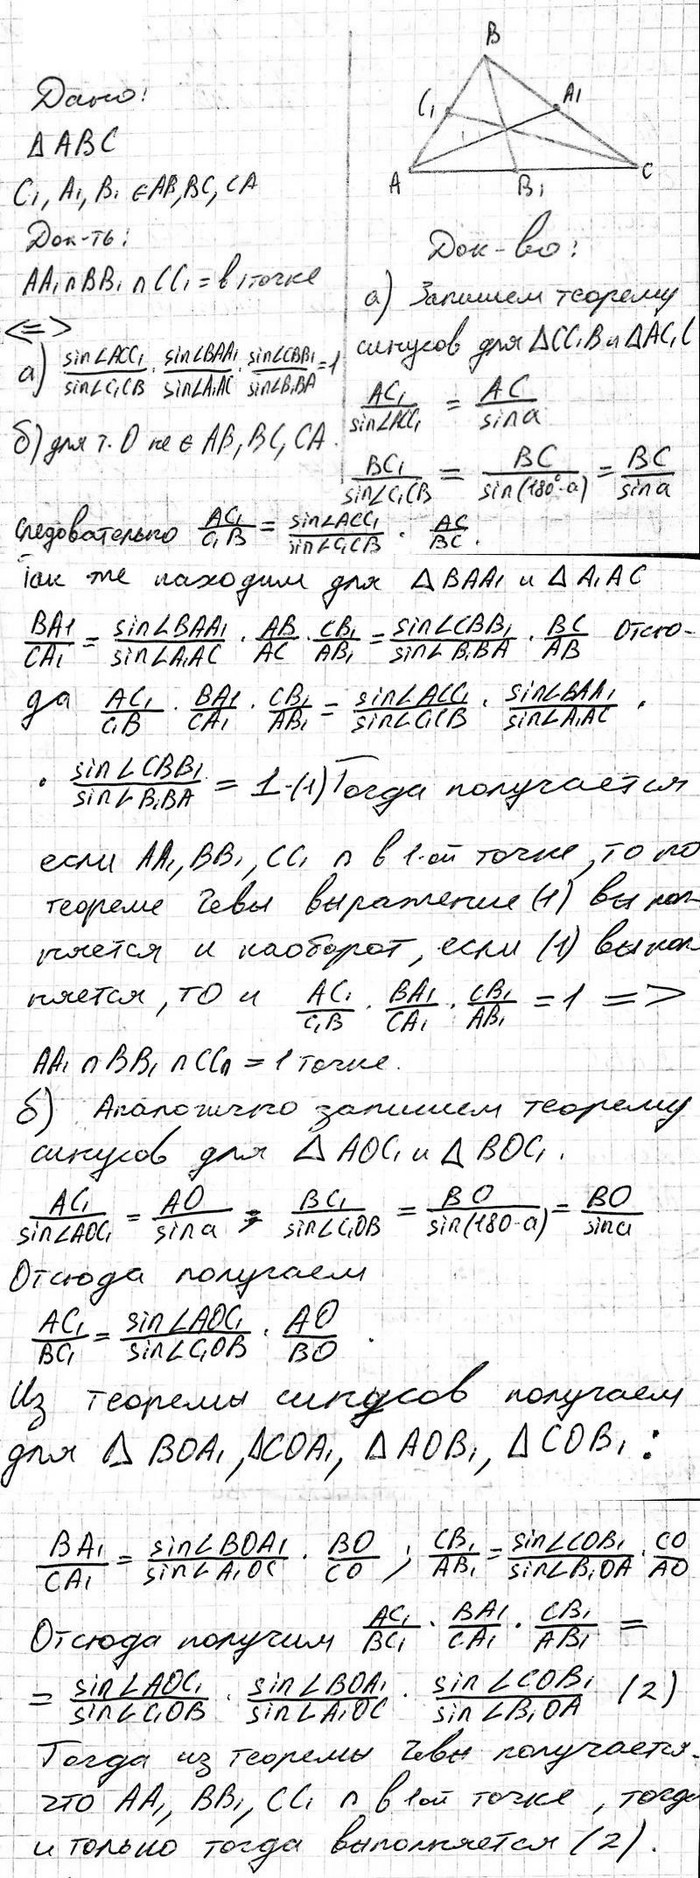 Дано:
Δ ABC
C₁, A₁, B₁ ∈ AB, BC, CA
Док-ть:
AA₁ ∩ BB₁ ∩ CC₁ = в 1 точке
<=>
а) sin∠ACC₁/sin∠C₁CB · sin∠BAA₁/sin∠A₁AC · sin∠CBB₁/sin∠B₁BA = 1
б) для т. O не ∈ AB, BC, CA.
B
C₁
A₁
A
B₁
C
Док-во:
а) Запишем теорему
синусов для ΔCC₁B и ΔAC₁C
AC₁/sin∠ACC₁ = AC/sin a
BC₁/sin∠C₁CB = BC/sin(180°-a) = BC/sin a
следовательно AC₁/C₁B = sin∠ACC₁/sin∠C₁CB · AC/BC.
Так же находим для Δ BAA₁ и Δ A₁AC
BA1/CA₁ = sin∠BAA₁/sin∠A₁AC · AB/AC · CB₁/AB₁ = sin∠CBB₁/sin∠B₁BA · BC/AB Отсю-
да AC₁/C₁B · BA1/CA₁ · CB₁/AB₁ = sin∠ACC₁/sin∠C₁CB · sin∠BAA₁/sin∠A₁AC ·
· sin∠CBB₁/sin∠B₁BA = 1-(1) Тогда получается
если AA₁, BB₁, CC₁ ∩ в 1-ой точке, то по
теореме Чевы выражение (1) выпол-
няется и наоборот, если (1) выпол-
няется, то и AC₁/C₁B · BA₁/CA₁ · CB₁/AB₁ = 1 =>
AA₁ ∩ BB₁ ∩ CC₁ = 1 точке.
б) Аналогично запишем теорему
синусов для Δ AOC₁ и Δ BOC₁.
AC₁/sin∠AOC₁ = AO/sin a ; BC₁/sin∠C₁OB = BO/sin(180-a) = BO/sin a
Отсюда получаем
AC₁/BC₁ = sin∠AOC₁/sin∠C₁OB · AO/BO.
Из теоремы синусов получаем
для Δ BOA₁, ΔCOA₁, ΔAOB₁, ΔCOB₁:
BA₁/CA₁ = sin∠BOA₁/sin∠A₁OC · BO/CO ; CB₁/AB₁ = sin∠COB₁/sin∠B₁OA · CO/AO
Отсюда получим AC₁/BC₁ · BA1/CA₁ · CB₁/AB₁ =
= sin∠AOC₁/sin∠C₁OB · sin∠BOA₁/sin∠A₁OC · sin∠COB₁/sin∠B₁OA (2)
Тогда из теоремы Чевы получается.
что AA₁, BB₁, CC₁ ∩ в 1ой точке, тогда
и только тогда выполняется (2).